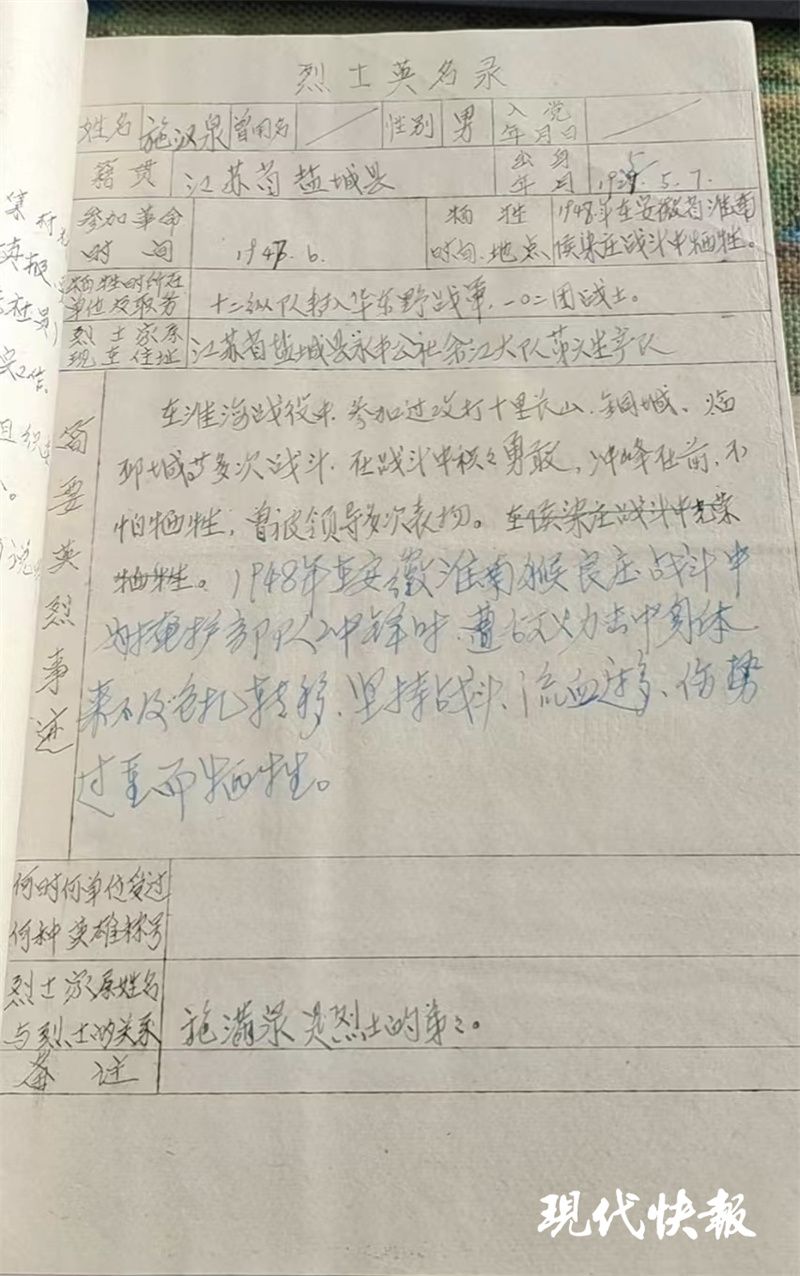 烈士英名录
姓名 施汉泉 曾用名 性别 男 入党年月日
籍贯 江苏省盐城县 出身年月 5.7.
参加革命时间 6. 牺牲时间、地点 1948年在安徽省淮南侯梁庄战斗中牺牲。
牺牲时所在单位及职务 十二纵队 华东野战军,一〇二团战士。
烈士家属现在住址 江苏省盐城县永丰公社 江大队 生产队
简要英烈事迹
在淮海战役中,参加过攻打十里长山、铜城、
城等多次战斗,在战斗中积々勇敢,冲峰在前,不
怕牺牲,曾被领导多次表扬。在侯梁庄战斗中光荣
牺牲。1948年在安徽淮南猴良庄战斗中
为掩护部队冲锋时,遭 火力击中身体
来不及包扎转移、坚持战斗、流血过多、伤势
过重而牺牲。
何时何单位受过
何种英雄称号
烈士家属姓名
与烈士的关系 施满泉是烈士的弟々。
备注
现代快报